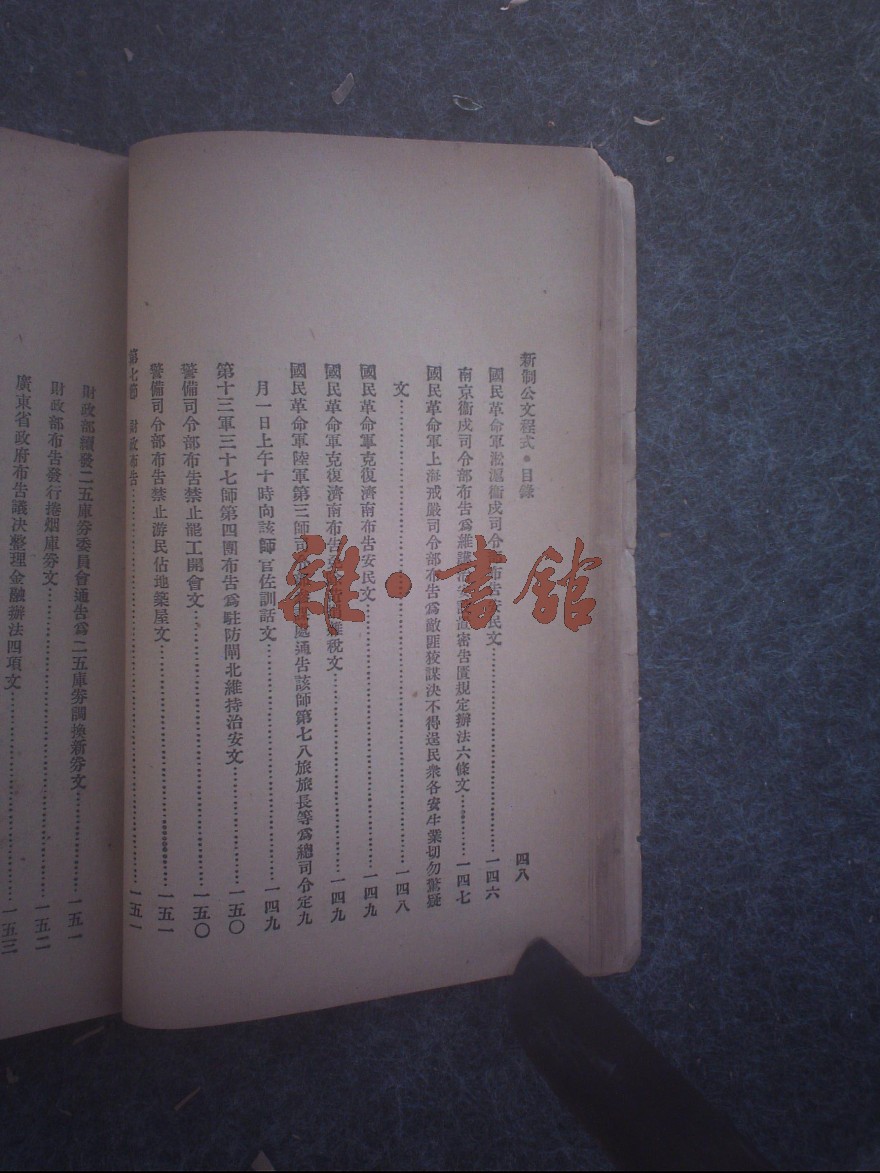 新制公文程式·目錄 四八
國民革命軍淞滬衞戍司令 布告安民文 一四六
南京衞戍司令部布告爲維護治安 密告匭規定辦法六條文 一四七
國民革命軍上海戒嚴司令部布告爲敵匪狡謀決不得逞民衆各安生業切勿驚疑
文 一四八
國民革命軍克復濟南布告安民文 一四九
國民革命軍克復濟南布告 雜稅文 一四九
國民革命軍陸軍第三師司 處通告該師第七八旅旅長等爲總司令定九
月一日上午十時向該師官佐訓話文 一四九
第十三軍三十七師第四團布告爲駐防閘北維持治安文 一五〇
警備司令部布告禁止罷工開會文 一五〇
警備司令部布告禁止游民佔地築屋文 一五一
第七節 財政布告 一五一
財政部續發二五庫券委員會通告爲二五庫券調換新券文 一五一
財政部布告發行捲烟庫券文 一五二
廣東省政府布告議決整理金融辦法四項文 一五三
雜·書館